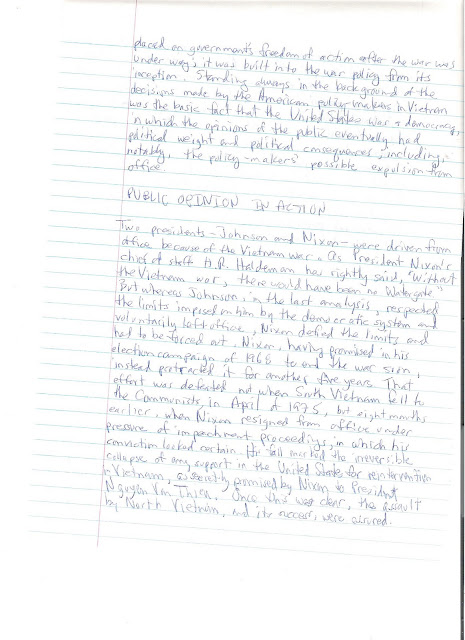 placed on government's freedom of action after the war was
under way; it was built into the war policy from its
inception. Standing always in the background of the
decisions made by the American policy makers in Vietnam
was the basic fact that the United States was a democracy,
in which the opinions of the public eventually had
political weight and political consequences, including,
notably, the policy-makers' possible expulsion from
office.
PUBLIC OPINION IN ACTION
Two presidents - Johnson and Nixon - were driven from
office because of the Vietnam war. As President Nixon's
chief of staff H.R. Haldeman has rightly said, "Without
the Vietnam war, there would have been no Watergate"
But whereas Johnson, in the last analysis, respected
the limits imposed on him by the democratic system and
voluntarily left office, Nixon defied the limits and
had to be forced out. Nixon, having promised in his
election campaign of 1968 to end the war soon,
instead protracted it for another five years. That
effort was defeated not when South Vietnam fell to
the Communists, in April of 1975, but eight months
earlier, when Nixon resigned from office under
pressure of impeachment proceedings, in which his
conviction looked certain. His fall marked the irreversible
collapse of any support in the United States for reintervention
in Vietnam, as secretly promised by Nixon to President
Nguyen Van Thieu. Once this was clear, the assault
by North Vietnam, and its success, were assured.